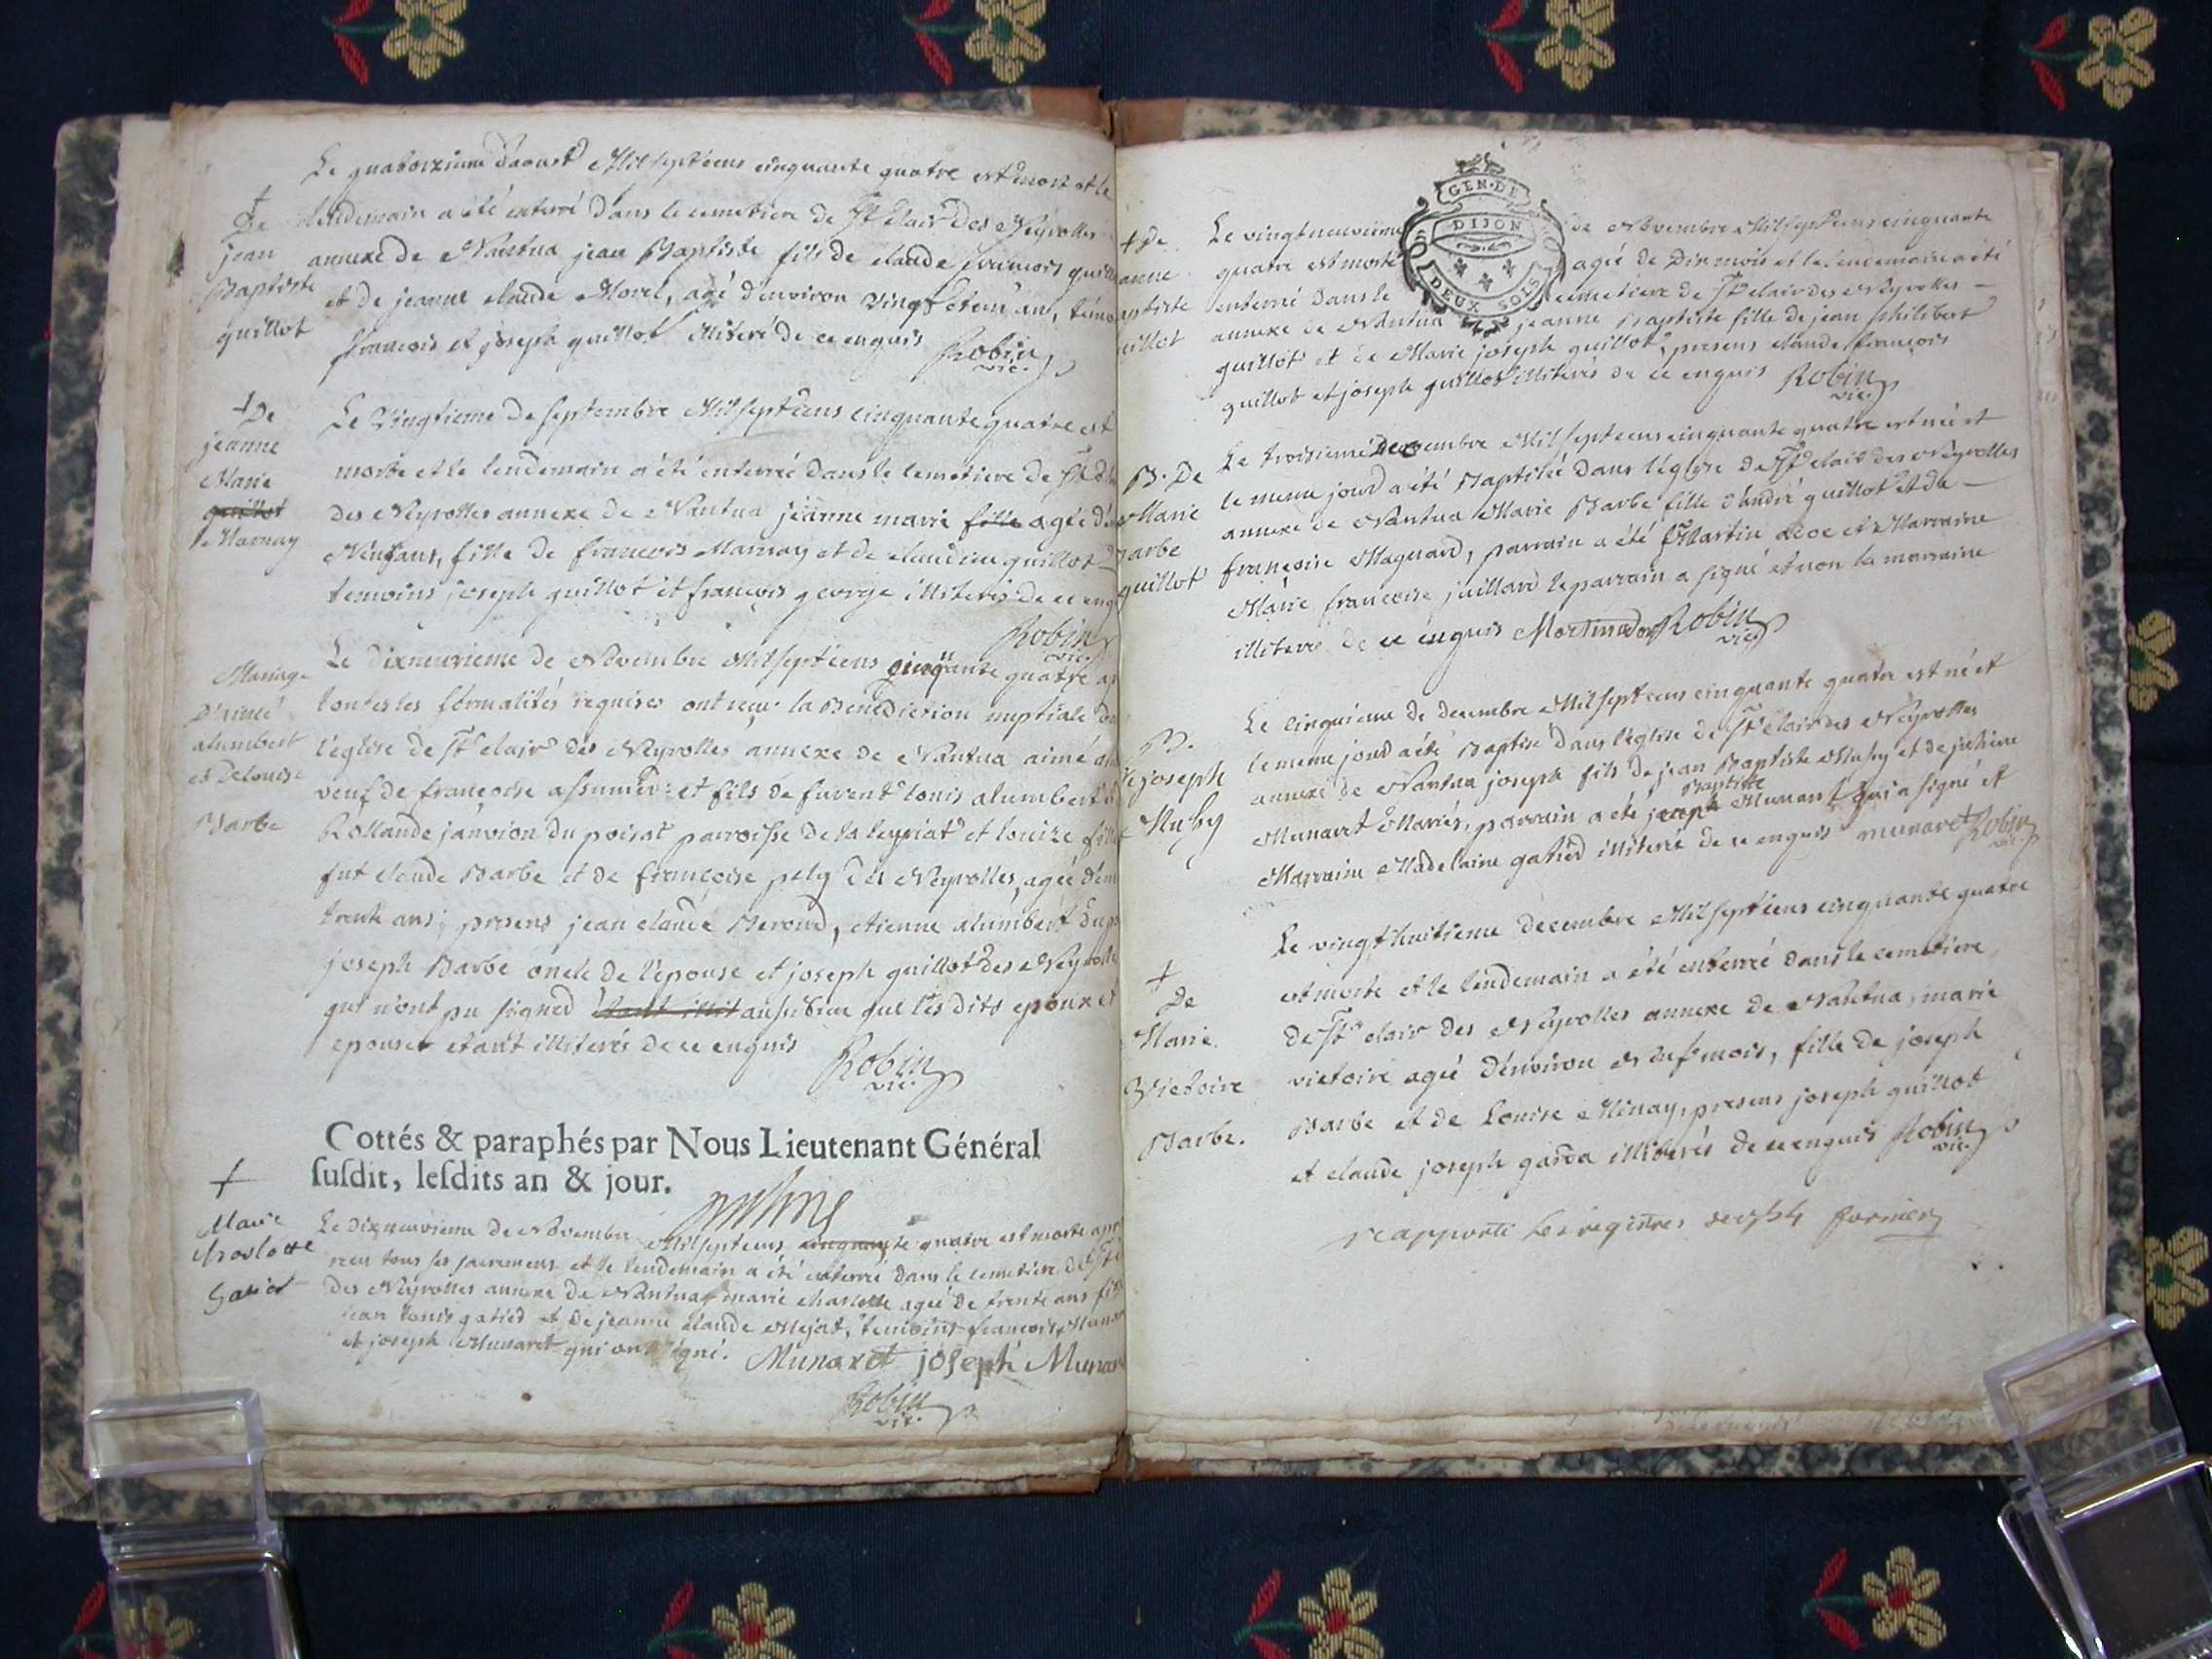 Le quatorzieme d'aoust Mil sept cens cinquante quatre est mort et le
lendemain a été enterré dans le cemetiere de St clair des Neyrolles
annexe de Nantua jean Baptiste fils de claude francois
et de jeanne claude Morel, agé d'environ vingt et un an,
francois et joseph guillot illiteré de ce enquis
Robin
vic.
+
De
jean
Baptiste
guillot
Le vingtieme de septembre Mil sept cens cinquante quatre est
morte et le lendemain a été enterrée dans le cemetiere de St
des Neyrolles annexe de Nantua jeanne marie fille agée
ans, fille de francois Marnay et de claudine guillot
temoins joseph guillot et francois george illiterés de ce
Robin
vic.
+ De
jeanne
Marie
guillot
Marnay
Le dixneuvieme de Novembre Mil sept cens cinquante quatre
toutes les formalités requises ont reçu la Benediction nuptiale
l'église de St clair des Neyrolles annexe de Nantua aimé
veuf de françoise et fils de furent louis alumbert
Rollande janvion du poizat parroisse de la leyriat et louize
fut claude Barbe et de françoise pely des Neyrolles, agée
trente ans; presens jean claude Beroud, etienne alumbert
joseph Barbe oncle de l'epouse et joseph guillot des
qui n'ont pu signer aussi bien que les dits epoux et
epouse etant illiterés de ce enquis
Robin
vic.
Mariage
D'aimé
alumbert
et De louise
Barbe
Cottés & paraphés par Nous Lieutenant Général
susdit, lesdits an & jour.
+
Marie
Charlotte
Gatier
Le dixneuvieme de Novembre Mil sept cens cinquante quatre est morte
recu tous ses sacremens et le lendemain a été enterrée dans le cemetiere de St
des Neyrolles annexe de Nantua marie charlotte agée de trente ans
jean louis gatier et de jeanne claude Mejat, temoins francois
et joseph Munaret qui ont signé. Munaret joseph
Robin
vic.
GEN. DE
DIJON
DEUX SOLS
Le vingtneuvieme de Novembre Mil sept cens cinquante
quatre est morte agée de Dix mois et le lendemain a été
enterré dans le cemetiere de St clair des Neyrolles
annexe de Nantua jeanne Baptiste fille de jean philibert
guillot et de Marie joseph guillot, presens claude francois
guillot et joseph guillot illiterés de ce enquis Robin
vic.
+ De
Le troisieme Decembre Mil sept cens cinquante quatre est née et
le meme jour a été Baptisée dans l'église de St clair des Neyrolles
annexe de Nantua Marie Barbe fille d'andré guillot et de
françoise Magnard, parrain a été Martin et Marraine
Marie françoise juillard le parrain a signé et non la marraine
illiteré de ce enquis Robin
vic.
B. De
Marie
Barbe
guillot
Le cinquieme de decembre Mil sept cens cinquante quatre est né et
le meme jour a été Baptisé dans l'église de St clair des Neyrolles
annexe de Nantua joseph fils de jean Baptiste et de
Munaret Mariés, parrain a été Baptiste Munaret qui a signé et
Marraine Madelaine gatier illiteré de ce enquis munaret Robin
vic.
B.
joseph
Le vingt huitieme decembre Mil sept cens cinquante quatre
est morte et le lendemain a été enterré dans le cemetiere
de St clair des Neyrolles annexe de Nantua, marie
victoire agée d'environ neuf mois, fille de joseph
Barbe et de Louise Minay, presens joseph guillot
et claude joseph garda illiterés de ce enquis Robin
vic.
+
De
Marie
Victoire
Barbe.
rapporté les registres